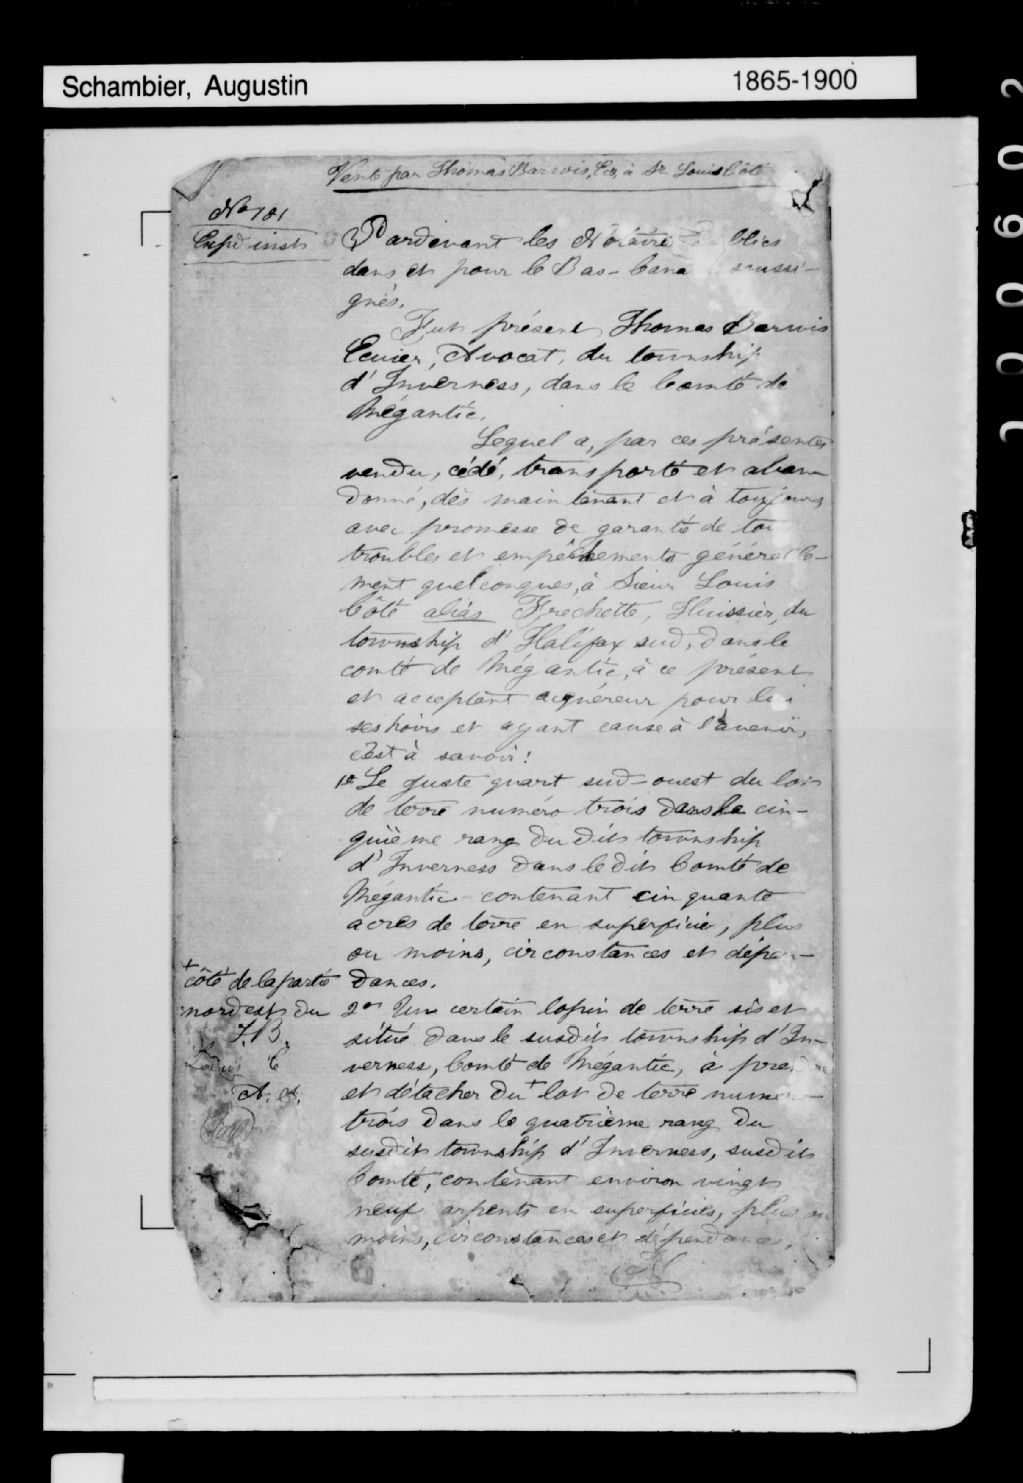 Schambier, Augustin 1865-1900
Vente par Thomas Barwis, Ecr, à Sr Louis Côté
No 181
Expd insts
Pardevant les Notaires Publics
dans et pour le Bas-Cana soussi-
gnés.
Fut présent Thomas Barwis
Ecuier, Avocat, du township
d'Inverness, dans le Comté de
Mégantic.
Lequel a, par ces présentes
vendu, cédé, transporté et aban
donné, dès maintenant et à toujours
avec promesse de garanté de tou
troubles et empêchements générale-
ment quelconques, à Sieur Louis
Côté aliàs Frechette, Huissier, du
township d'Halifax sud, dans le
comté de Mégantic, à ce présent
et acceptant acquéreur pour lui
ses hoirs et ayant cause à l'avenir,
c'est à savoir:
1o Le juste quart sud-ouest du lot
de terre numéro trois dans le cin-
quième rang du dit township
d'Inverness dans le dit Comté de
Mégantic contenant cinquante
acres de terre en superficie, plus
ou moins, circonstances et dépen-
dances.
2o Un certain lopin de terre sis et
situé dans le susdit township d'In-
verness, Comté de Mégantic, à prendre
et détacher du + lot de terre numéro
trois dans le quatrième rang du
susdit township d'Inverness, susdit
Comté, contenant environ vingt
neuf arpents en superficies, plus ou
moins, circonstances et dépendances.
+ côté de la partie
nord est du
T.B.
Louis C
A. et.
100602